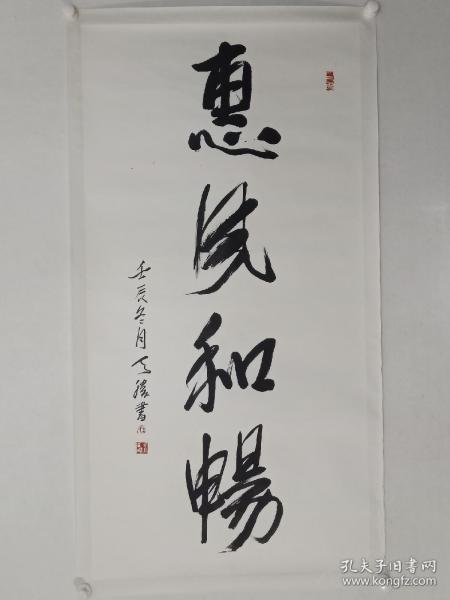 惠洗和暢
壬辰冬月天勝書
孔夫子旧书网
www.kongfz.com